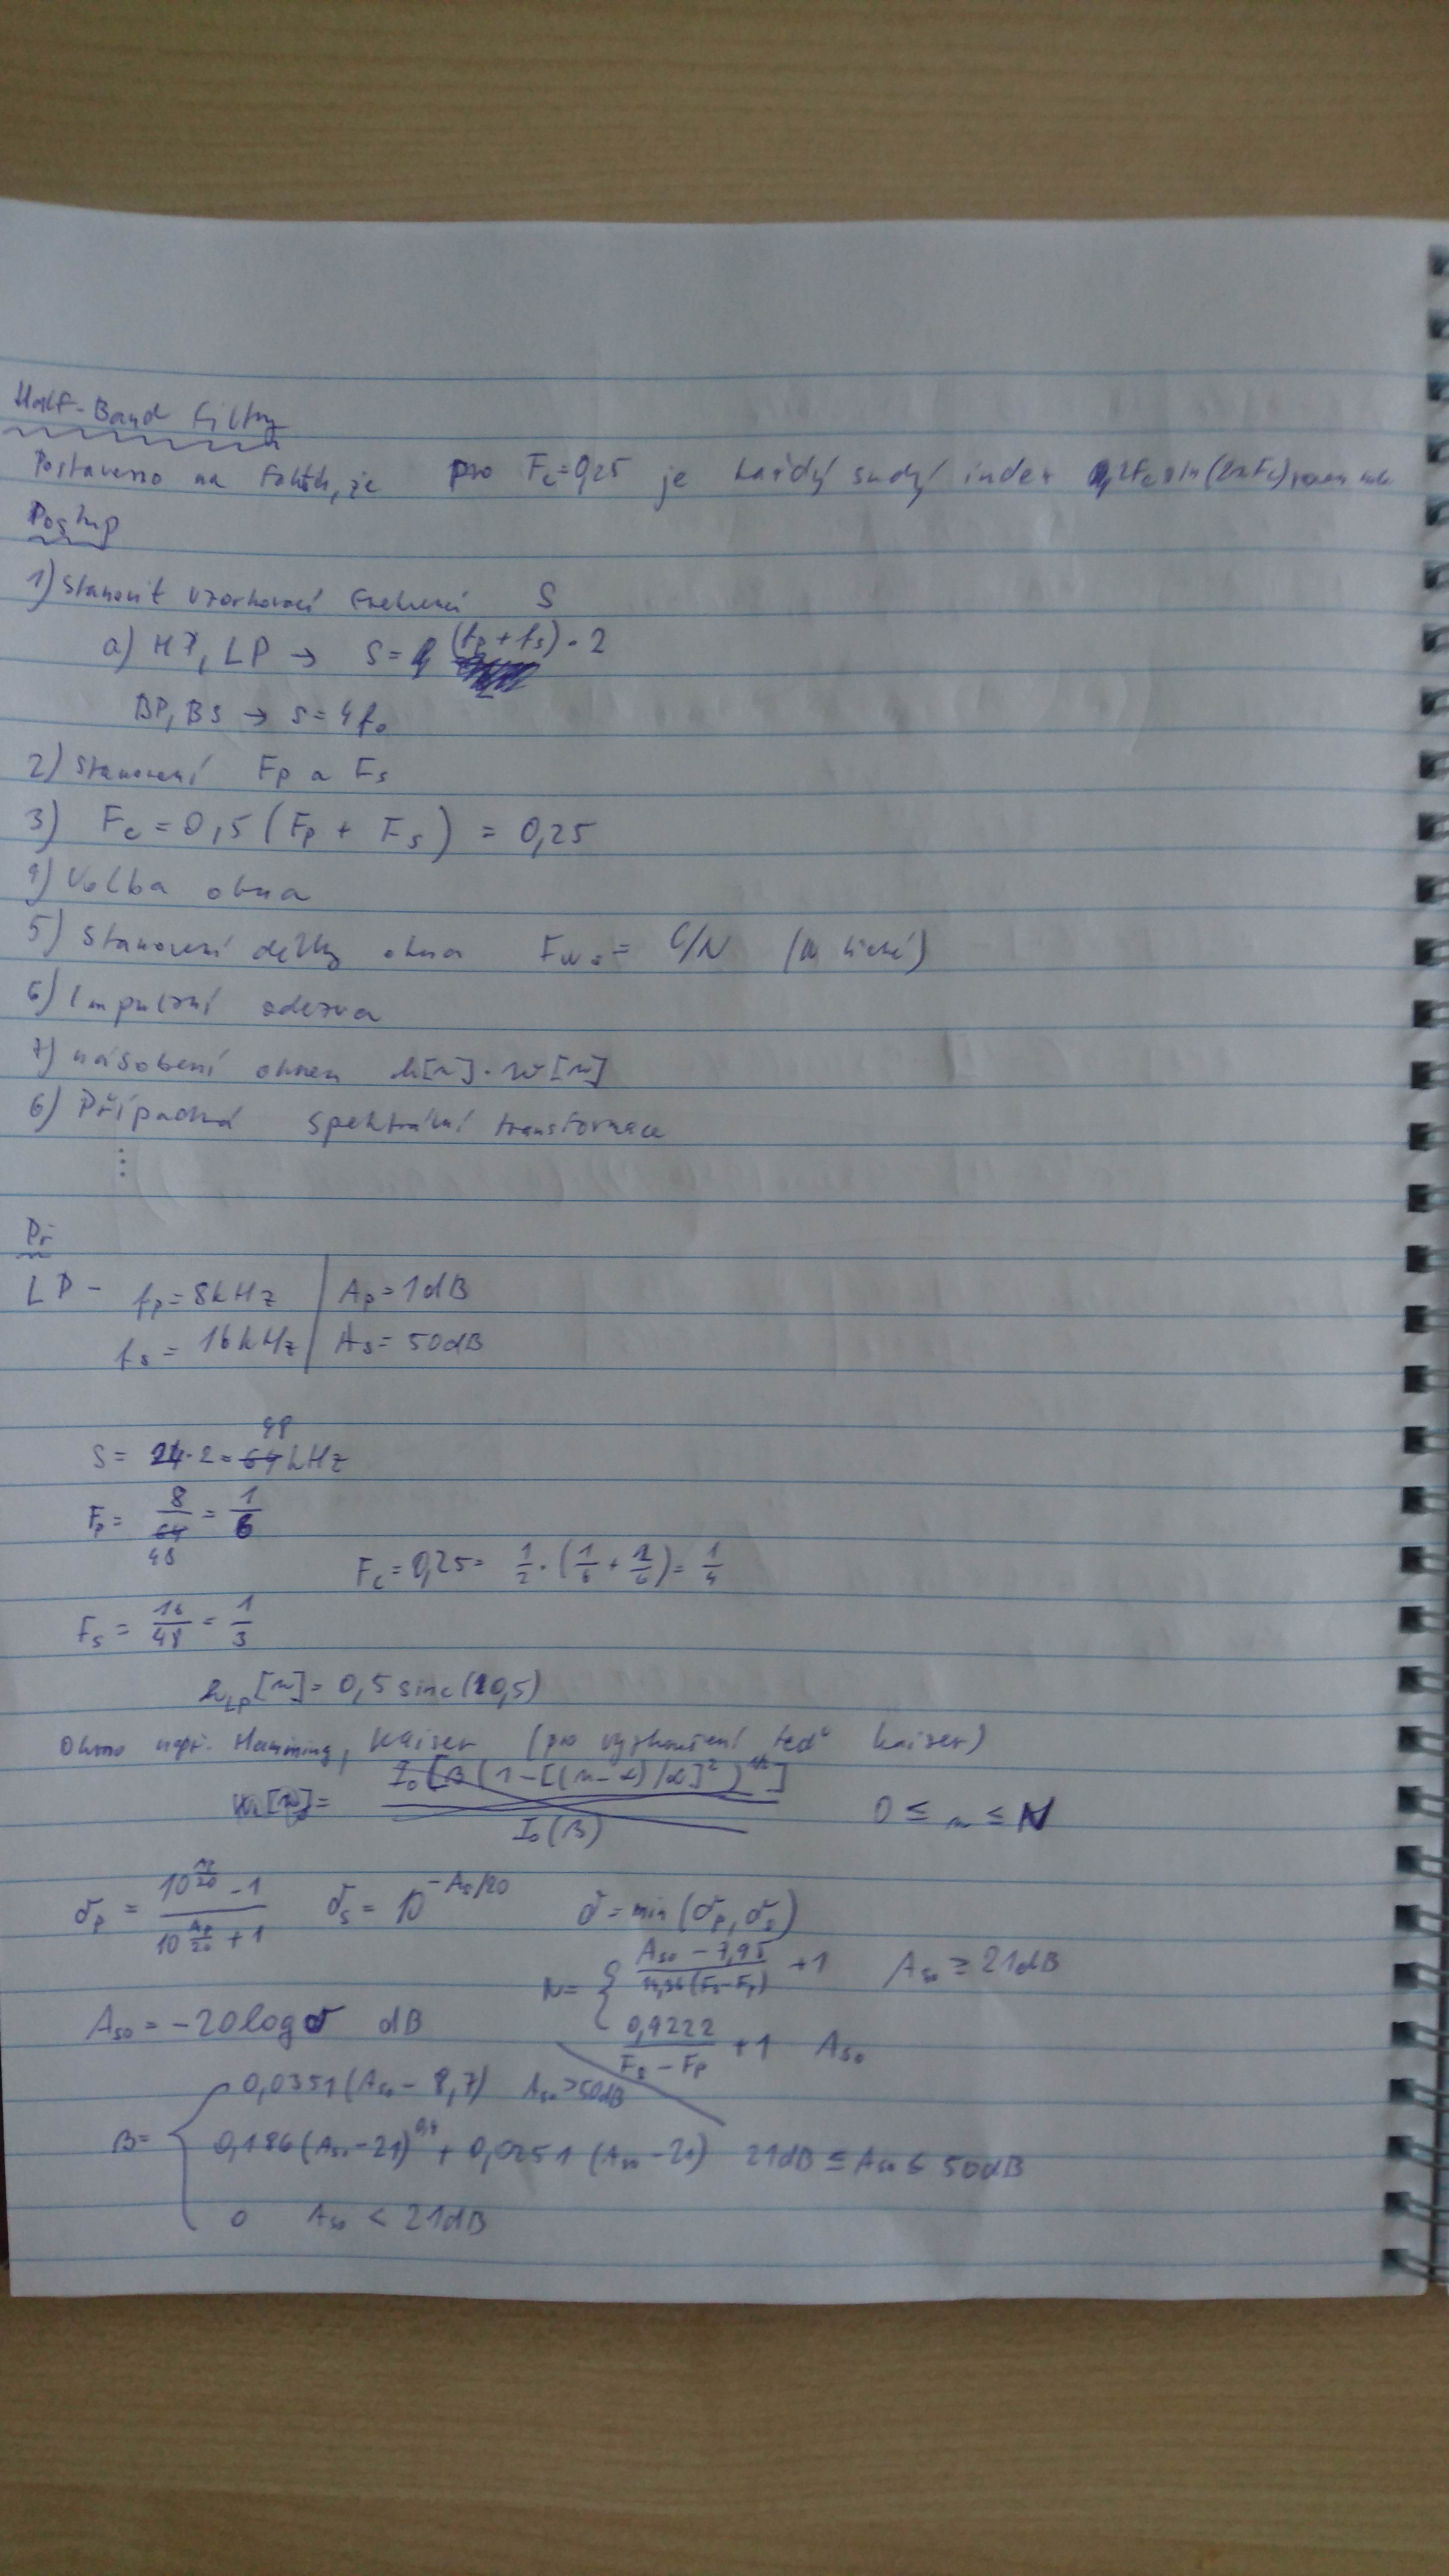 Half-Band Filtry
Postaveno na faktech, že pro Fc=0,25 je každý sudý index 2Fc sin(2πFc) roven
Postup
1) Stanovit vzorkovací frekvenci S
a) HP, LP → S= (fp + fs) · 2
BP, BS → S = 4f₀
2) Stanovení Fp a Fs
3) Fc = 0,5 (Fp + Fs) = 0,25
4) Volba okna
5) Stanovení délky okna Fws = C/N (N liché)
6) Impulzní odezva
7) násobení oknem h[n] · w[n]
6) Případná spektrální transformace
⋮
Př
LP - fp = 8kHz | Ap = 1dB
fs = 16kHz | As = 50dB
S = 24·2 = 48 kHz
Fp = 8/48 = 1/6
Fc = 0,25 = 1/2 · (1/6 + 2/6) = 1/4
Fs = 16/48 = 1/3
hLP[n] = 0,5 sinc(0,5)
Okno např. Hamming, Kaiser (pro vyzkoušení teď kaiser)
w[n] = I₀[β(1-[(n-α)/α]²)^1/2] / I₀(β) 0 ≤ n ≤ N
δp = (10^(Ap/20) - 1) / (10^(Ap/20) + 1) δs = 10^(-As/20) δ = min(δp, δs)
N = { (As₀ - 7,95) / (14,36(Fs-Fp)) + 1 As₀ ≥ 21dB
As₀ = -20 log δ dB
0,9222 / (Fs - Fp) + 1 As₀
β = { 0,0351(As₀ - 8,7) As₀ > 50dB
0,186(As₀ - 21)^0,4 + 0,0251(As₀ - 21) 21dB ≤ As₀ ≤ 50dB
0 As₀ < 21dB